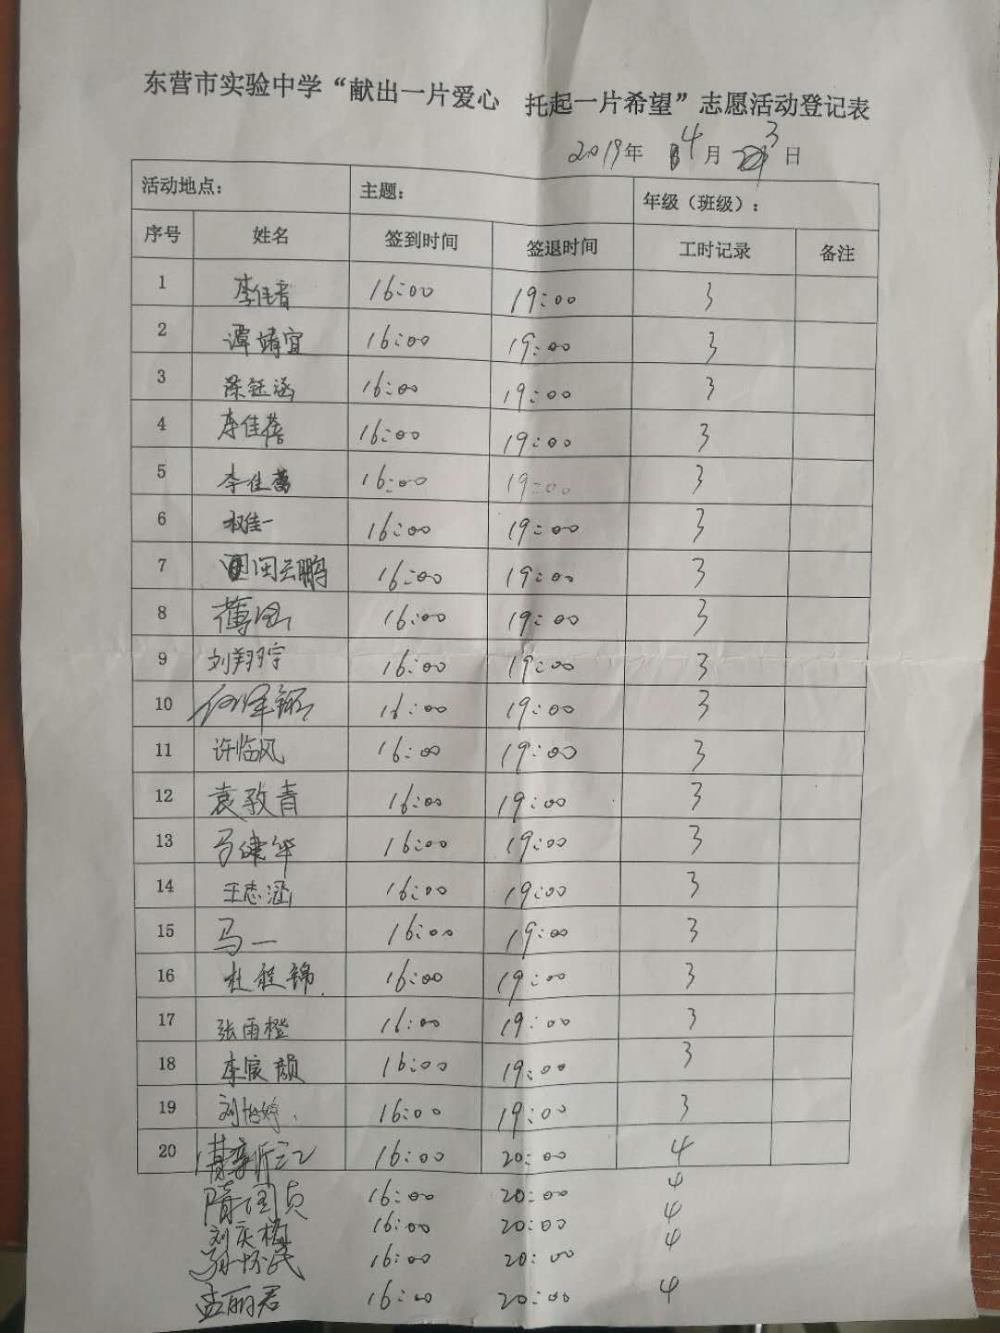 东营市实验中学“献出一片爱心 托起一片希望”志愿活动登记表
2019年 4月 3日
活动地点： 主题： 年级（班级）：
序号 姓名 签到时间 签退时间 工时记录 备注
1 李佳蓉 16:00 19:00 3
2 谭婧宜 16:00 19:00 3
3 陈钰涵 16:00 19:00 3
4 李佳蓓 16:00 19:00 3
5 李佳蕾 16:00 19:00 3
6 权佳一 16:00 19:00 3
7 闵云鹏 16:00 19:00 3
8 16:00 19:00 3
9 刘翔宇 16:00 19:00 3
10 16:00 19:00 3
11 许临风 16:00 19:00 3
12 袁敬青 16:00 19:00 3
13 马健华 16:00 19:00 3
14 王志涵 16:00 19:00 3
15 马一 16:00 19:00 3
16 杜程锦 16:00 19:00 3
17 张雨橙 16:00 19:00 3
18 李宸颜 16:00 19:00 3
19 刘怡婷 16:00 19:00 3
20 16:00 20:00 4
隋国贞 16:00 20:00 4
刘庆梅 16:00 20:00 4
孙怀民 16:00 20:00 4
孟丽君 16:00 20:00 4